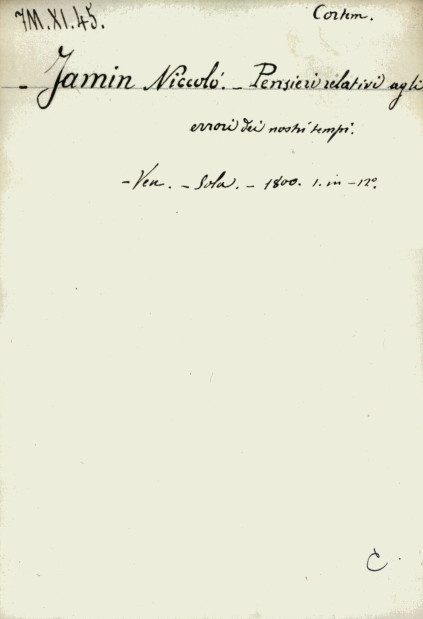 7M.XI.45.
Cortem.
- Jamin Niccoló. - Pensieri relativi agli
errori dei nostri tempi.
- Ven. - Sola. - 1800. 1. in - 12°.
C